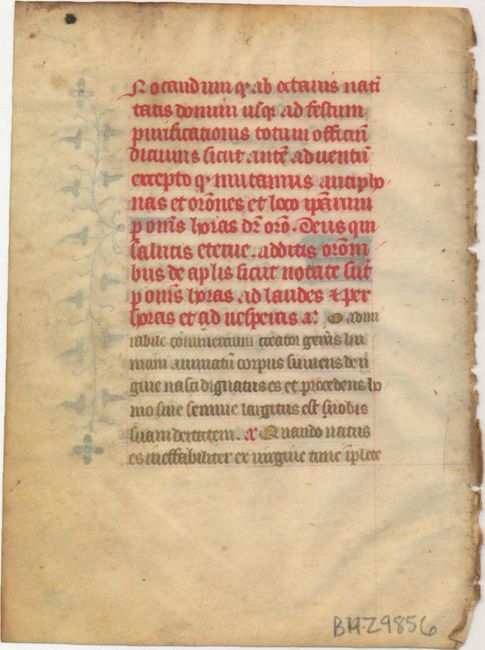 Notandum qͥ ab octavis nati
tatis domini usqȝ ad festum
purificationis totum officiū
dicimus sicut ante adventū
excepto qͥ mutamus antipho
nas et orōnes et loco ipārum
p omīs horas dr̄ orō. Deus qui
salutis eterne. additis orōni
bus de aplis sicut notate sūt
p omīs horas ad laudes ⁊ per
horas et ad vesperas a͛ O admi
rabile commertium creator geīis hu
mani animatū corpus sumens de vi
gine nasci dignatus es et procedens ho
mo sine semine largitus est nobis
suam deitatem. a͛ Quando natus
es ineffabiliter ex virgine tunc iplete
BH-Z9856